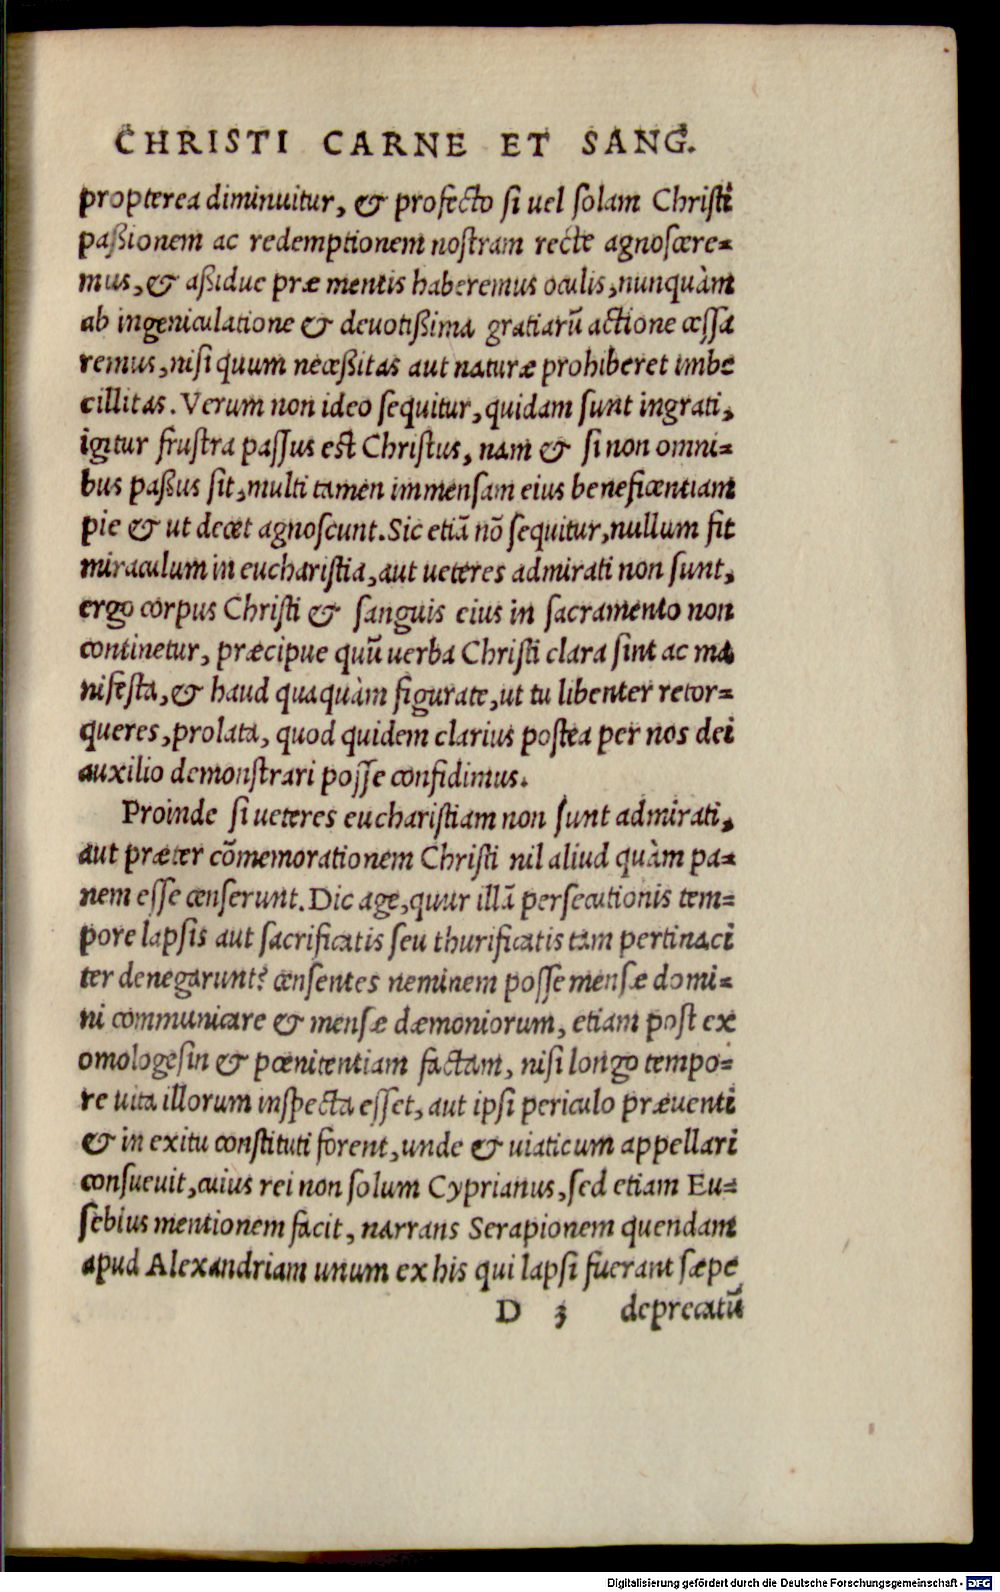 CHRISTI CARNE ET SANG.
propterea diminuitur, & profecto si uel solam Christi
paßionem ac redemptionem nostram recte agnoscere-
mus, & aßidue præ mentis haberemus oculis, nunquàm
ab ingeniculatione & deuotißima gratiarũ actione cessa
remus, nisi quum neceßitas aut naturæ prohiberet imbe
cillitas. Verum non ideo sequitur, quidam sunt ingrati,
igitur frustra passus est Christus, nam & si non omni-
bus paßus sit, multi tamen immensam eius beneficentiam
pie & ut decet agnoscunt. Sic etiã nõ sequitur, nullum fit
miraculum in eucharistia, aut ueteres admirati non sunt,
ergo corpus Christi & sanguis eius in sacramento non
continetur, præcipue quũ uerba Christi clara sint ac ma
nifesta, & haud quaquàm figurate, ut tu libenter retor-
queres, prolata, quod quidem clarius postea per nos dei
auxilio demonstrari posse confidimus.
Proinde si ueteres eucharistiam non sunt admirati,
aut præter cõmemorationem Christi nil aliud quàm pa-
nem esse censerunt. Dic age, quur illã persecutionis tem-
pore lapsis aut sacrificatis seu thurificatis tam pertinaci
ter denegarunt? censentes neminem posse mensæ domi-
ni communicare & mensæ dæmoniorum, etiam post ex
omologesin & pœnitentiam factam, nisi longo tempo-
re uita illorum inspecta esset, aut ipsi periculo præuenti
& in exitu constituti forent, unde & uiaticum appellari
consueuit, cuius rei non solum Cyprianus, sed etiam Eu-
sebius mentionem facit, narrans Serapionem quendam
apud Alexandriam unum ex his qui lapsi fuerant sæpe
D 3 deprecatũ
Digitalisierung gefördert durch die Deutsche Forschungsgemeinschaft - DFG